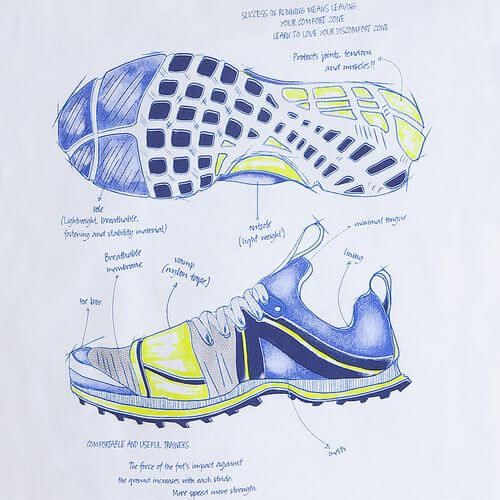 SUCCESS IN RUNNING MEANS LEAVING
YOUR COMFORT ZONE
LEARN TO LOVE YOUR DISCOMFORT ZONE
Protects joints, tendons
and muscles!!
sole
(Lightweight, breathable,
fastening and stability material)
outsole
(light weight)
minimal tongue
Breathable
membrane
vamp
(nylon tape)
lining
toe box
mesh
COMFORTABLE AND USEFUL TRAINERS
The force of the foot's impact against
the ground increases with each stride.
More speed more strength.